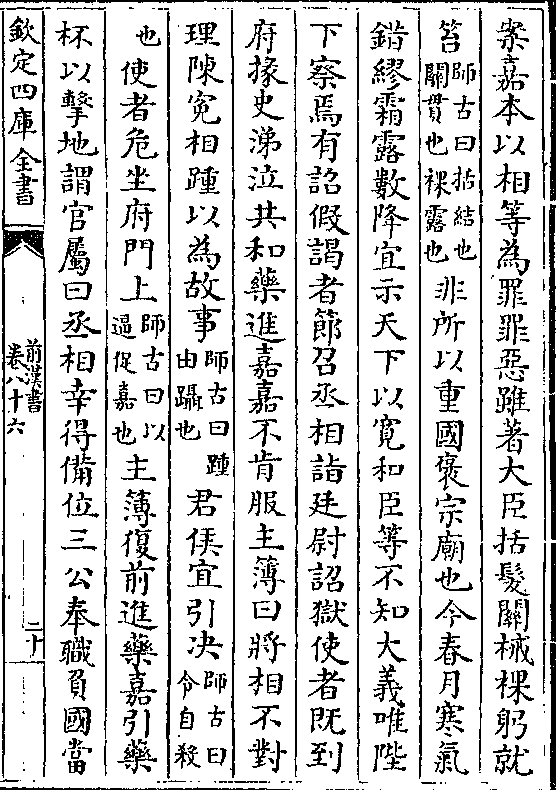 案嘉本以相等為罪罪惡雖著大臣括髮關械裸躬就
笞師古曰括結也關貫也裸露也非所以重國襃宗廟也今春月寒氣
錯繆霜露數降宜示天下以寛和臣等不知大義唯陛
下察焉有詔假謁者節召丞相詣廷尉詔獄使者既到
府掾史涕泣共和藥進嘉嘉不肯服主簿曰將相不對
理陳寃相踵以為故事師古曰踵由躡也君侯宜引决師古曰令自殺
也使者危坐府門上師古曰以逼促嘉也主簿復前進藥嘉引藥
杯以擊地謂官屬曰丞相幸得備位三公奉職負國當
欽定四庫全書
前漢書
卷八十六
二十